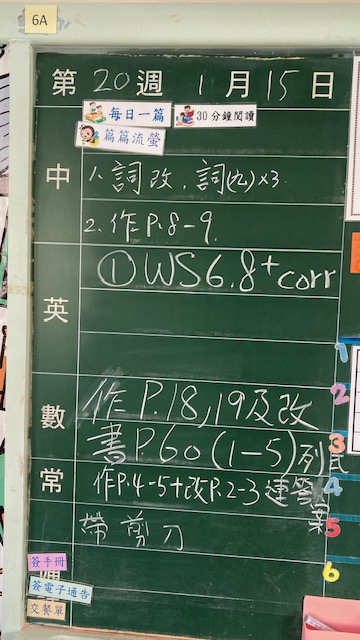 6A
第 20 週 1 月 15 日
每日一篇 30分鐘閱讀
篇篇流螢
中 1. 詞改, 詞(九)×3
2. 作P.8-9
英 ①WS6.8+corr
數 作P.18,19及改
書P.60(1-5)列式
常 作P.4-5+改P.2-3連答案
帶剪刀
簽手冊
簽電子通告
交餐單
1
2
3
4
5
6